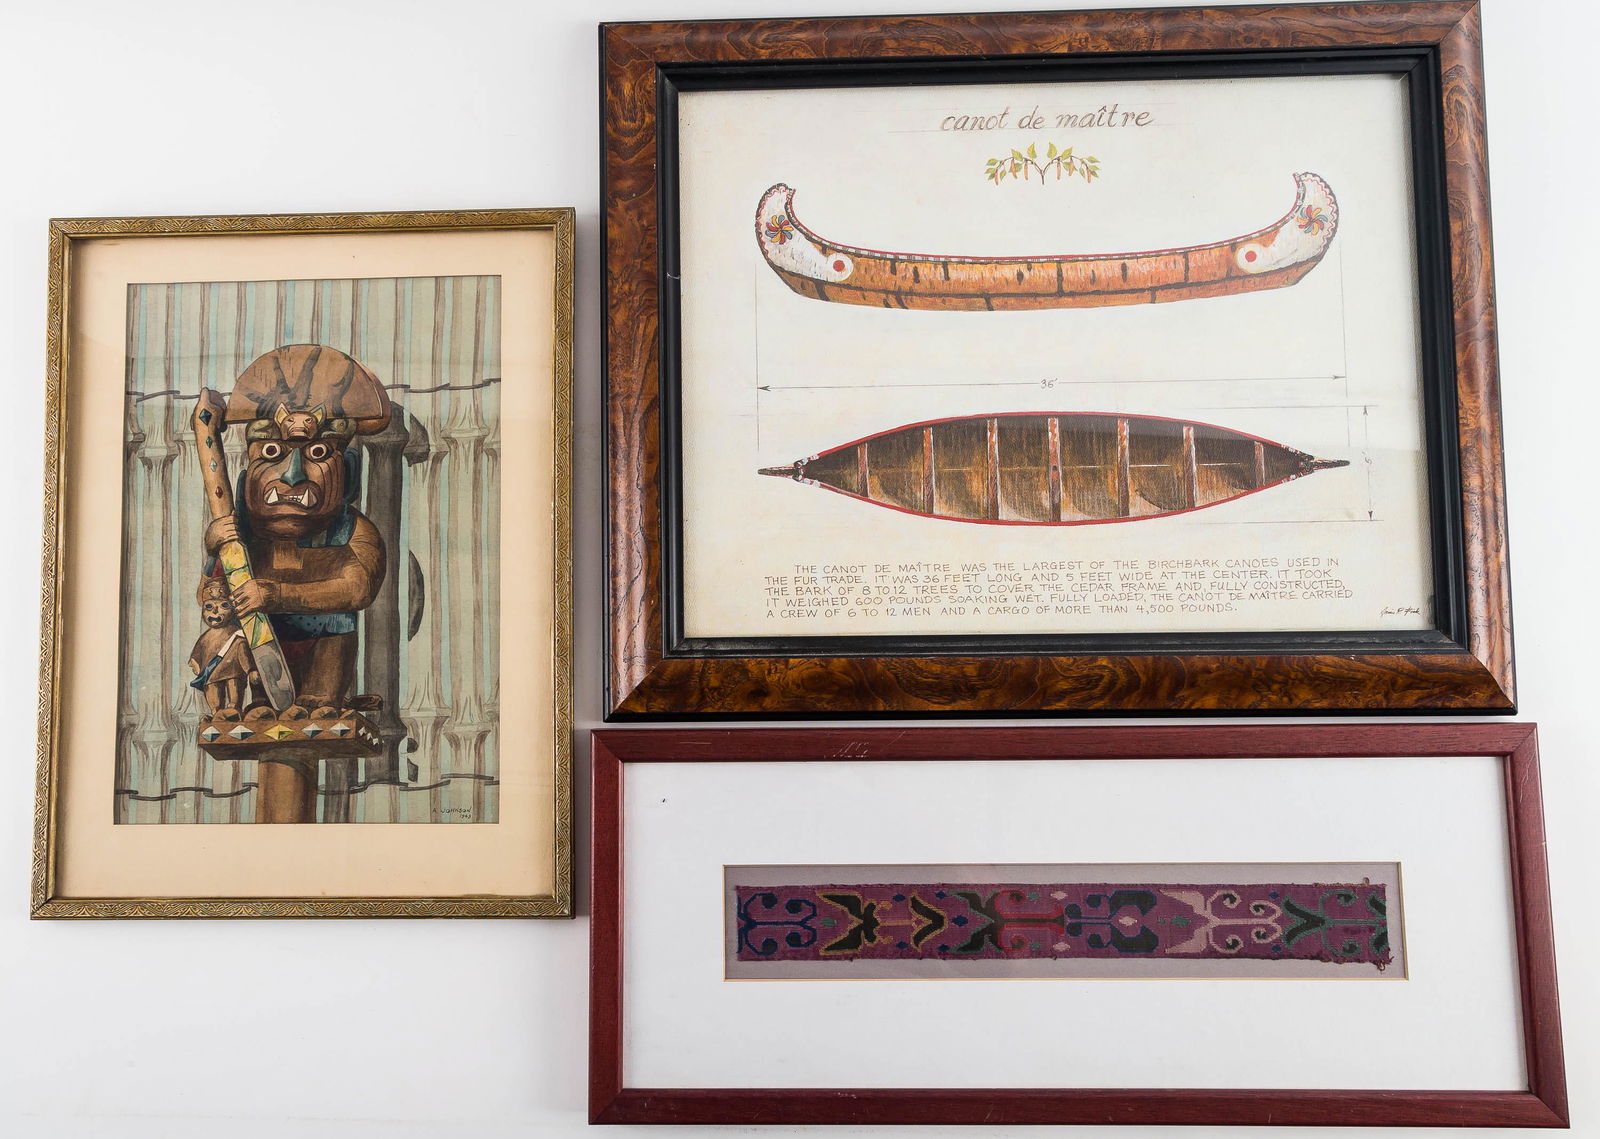 canot de maître
36'
5'
THE CANOT DE MAÎTRE WAS THE LARGEST OF THE BIRCHBARK CANOES USED IN
THE FUR TRADE. IT WAS 36 FEET LONG AND 5 FEET WIDE AT THE CENTER. IT TOOK
THE BARK OF 8 TO 12 TREES TO COVER THE CEDAR FRAME AND, FULLY CONSTRUCTED,
IT WEIGHED 600 POUNDS SOAKING WET. FULLY LOADED, THE CANOT DE MAÎTRE CARRIED
A CREW OF 6 TO 12 MEN AND A CARGO OF MORE THAN 4,500 POUNDS.
A. JOHNSON